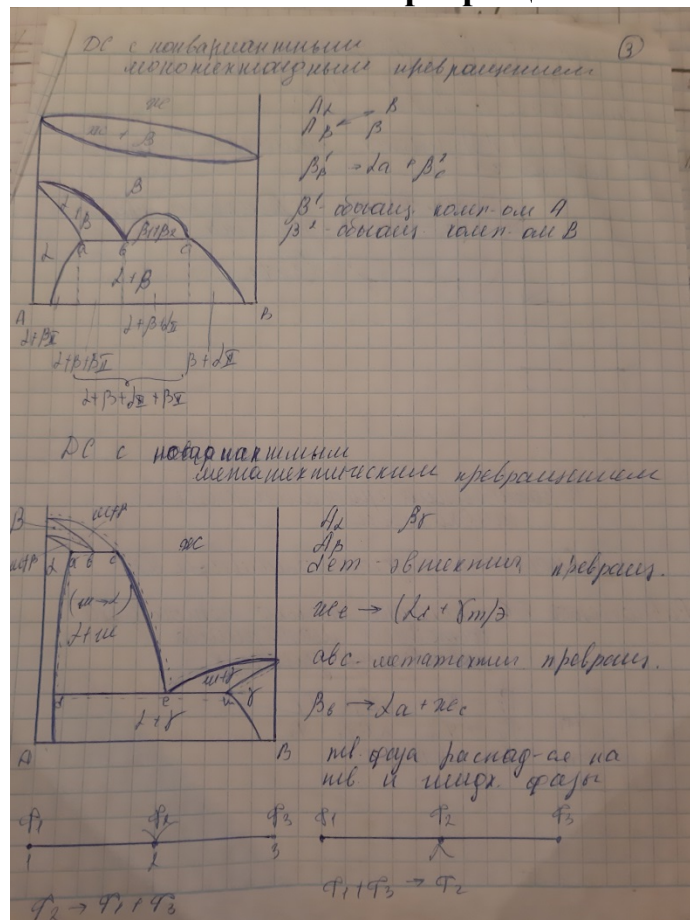 3
ДС с нонвариантным
монотектоидным превращением
ж
ж + β
β
α+β
β1+β2
α
a
в
c
α+β
A
B
α+βII
α+β+αII
α+β+βII
β+αII
α+β+αII+βII
Aα
B
Aβ
β
→ αa + βc²
β¹-обогащ комп-ом A
β²-обогащ комп-ом B
ДС с нонвариантным
метатектическим превращением
B
ж+β
ж
ж+β
α
a
в
c
(ж→α)
α+ж
ж+γ
γ
d
e
α+γ
A
B
Aα
Bγ
Aβ
- эвтектич превращ.
жe →
авс-метатектич превращ.
βв → αa + жc
тв. фаза распад-ся на
тв. и жидк. фазы
Ф1
Ф2
Ф3
Ф1
Ф2
Ф3
1
2
3
2
Ф2 → Ф1 + Ф3
Ф1+Ф3 → Ф2